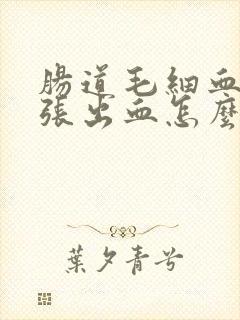 腸道毛細血
張出血怎麼
葉夕青兮